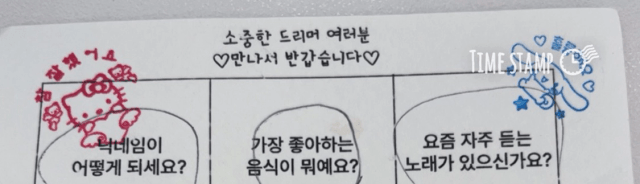 소중한 드리머 여러분
♡만나서 반갑습니다♡
참 잘했어요
TIME STAMP
닉네임이
어떻게 되세요?
가장 좋아하는
음식이 뭐예요?
요즘 자주 듣는
노래가 있으신가요?